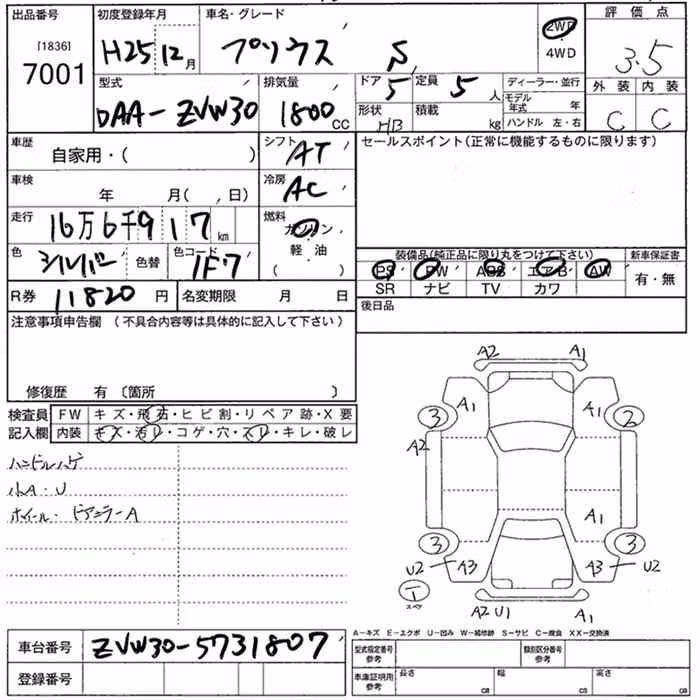 出品番号 初度登録年月 車名・グレード 評価点
[1836]
7001
H25 12月 プリウス S 2WD
4WD
3.5
型式 排気量 ドア 定員 ディーラー・並行 外装 内装
DAA-ZVW30 1800CC 5 5人 モデル年式 年 C C
形状 積載 ハンドル 左・右
HB kg
車歴 シフト セールスポイント(正常に機能するものに限ります)
自家用・( ) AT
車検 冷房
年 月( 、日) AC
走行 燃料
16万6千917km ガソリン
軽・油
( )
色 色替 色コード 装備品(純正品に限り丸をつけて下さい) 新車保証書
シルバー 1F7 PS PW ABS エアB AW 有・無
SR ナビ TV カワ
R券 11820円 名変期限 月 日 後日品
注意事項申告欄(不具合内容等は具体的に記入して下さい)
修復歴 有 〔箇所 〕
検査員 FW キズ・飛石・ヒビ割・リペア跡・X要
記入欄 内装 キズ・汚レ・コゲ・穴・スレ・キレ・破レ
ハンドルハゲ
小A・U
ホイール・ドアミラーA
A2 A1
A1 A1
3 2
A2
A1
3 3
U2 A3 A3 U2
1
スペア
A2 U1 A1
A-キズ E-エクボ U-凹み W-補修跡 S-サビ C-腐食 XX-交換済
車台番号 ZVW30-5731807 型式指定番号 参考 類別区分番号 参考
登録番号 車庫証明用 参考 長さ cm 幅 cm 高さ cm